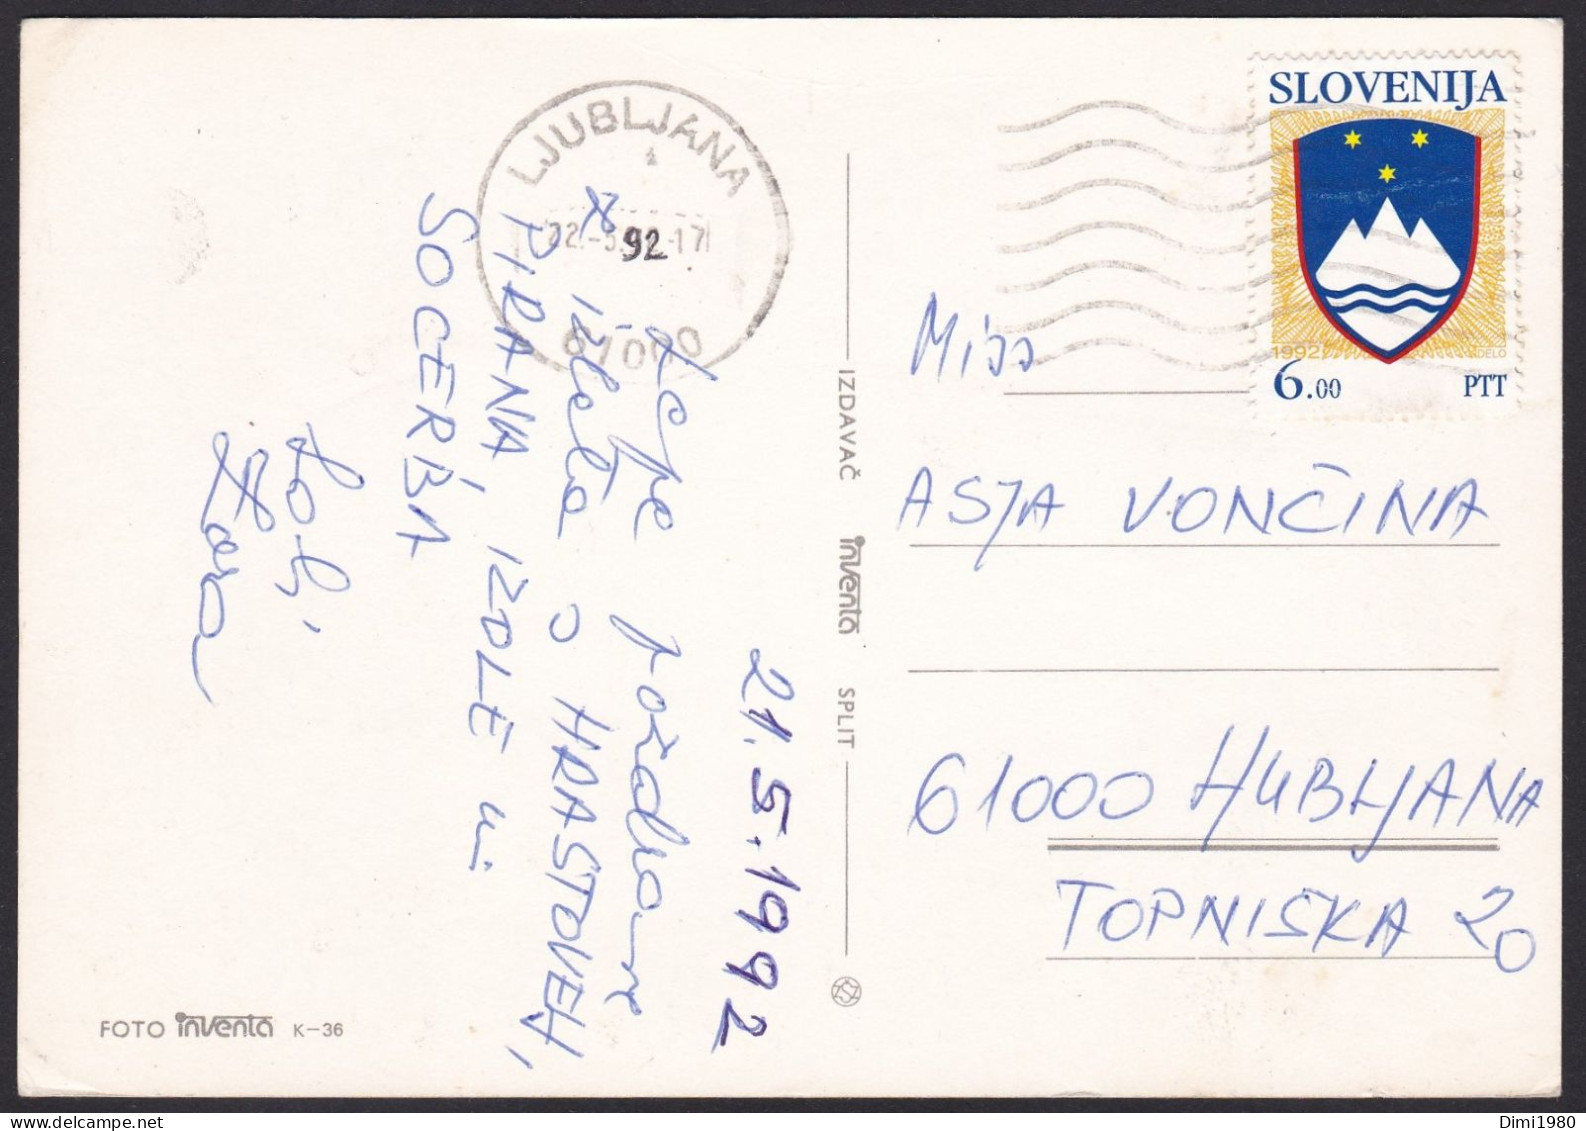 21.5.1992
Lepe pozdrave
z izleta v HRASTOVEH,
PIRANA, IZOLE in
SOCERBA
LJUBLJANA
22.-5.92-17
61000
IZDAVAČ inventa SPLIT
FOTO inventa K-36
SLOVENIJA
1992
DELO
6.00 PTT
Miss
ASJA VONČINA
61000 LJUBLJANA
TOPNIŠKA 20
Dimi1980